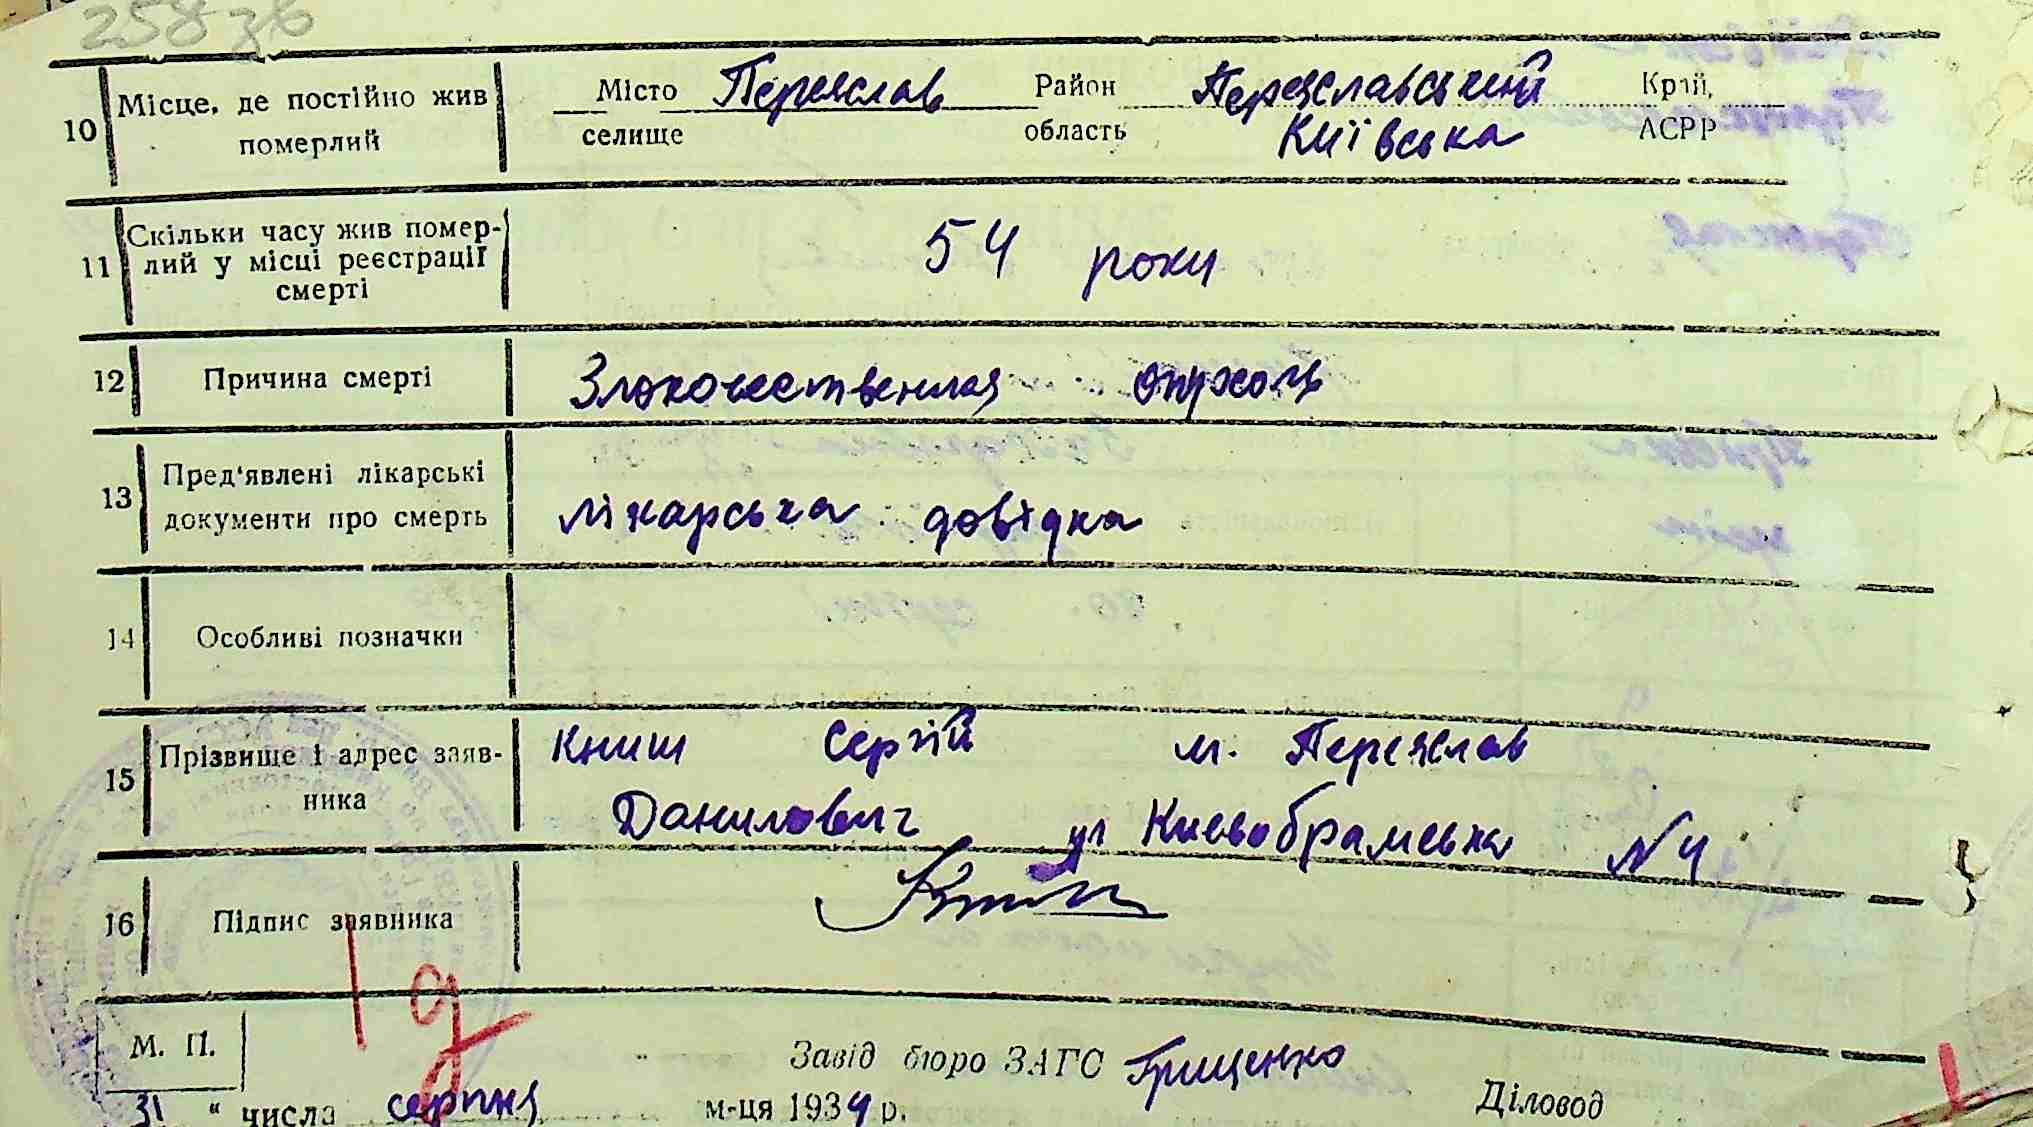 258 зв
10 Місце, де постійно жив померлий
Місто Переяслав Район Переяславський Край,
селище область Київська АСРР
11 Скільки часу жив помер-
лий у місці реєстрації
смерті
54 роки
12 Причина смерті Злокочественная опухоль
13 Пред'явлені лікарські
документи про смерть
лікарська довідка
14 Особливі позначки
15 Прізвище і адрес заяв-
ника
Книш Сергій м. Переяслав
Данилович ул Києвобрамська N 4
16 Підпис заявника
М. П.
Завід бюро ЗАГС Грищенко
Діловод
31 “ числа серпня м-ця 1934 р.